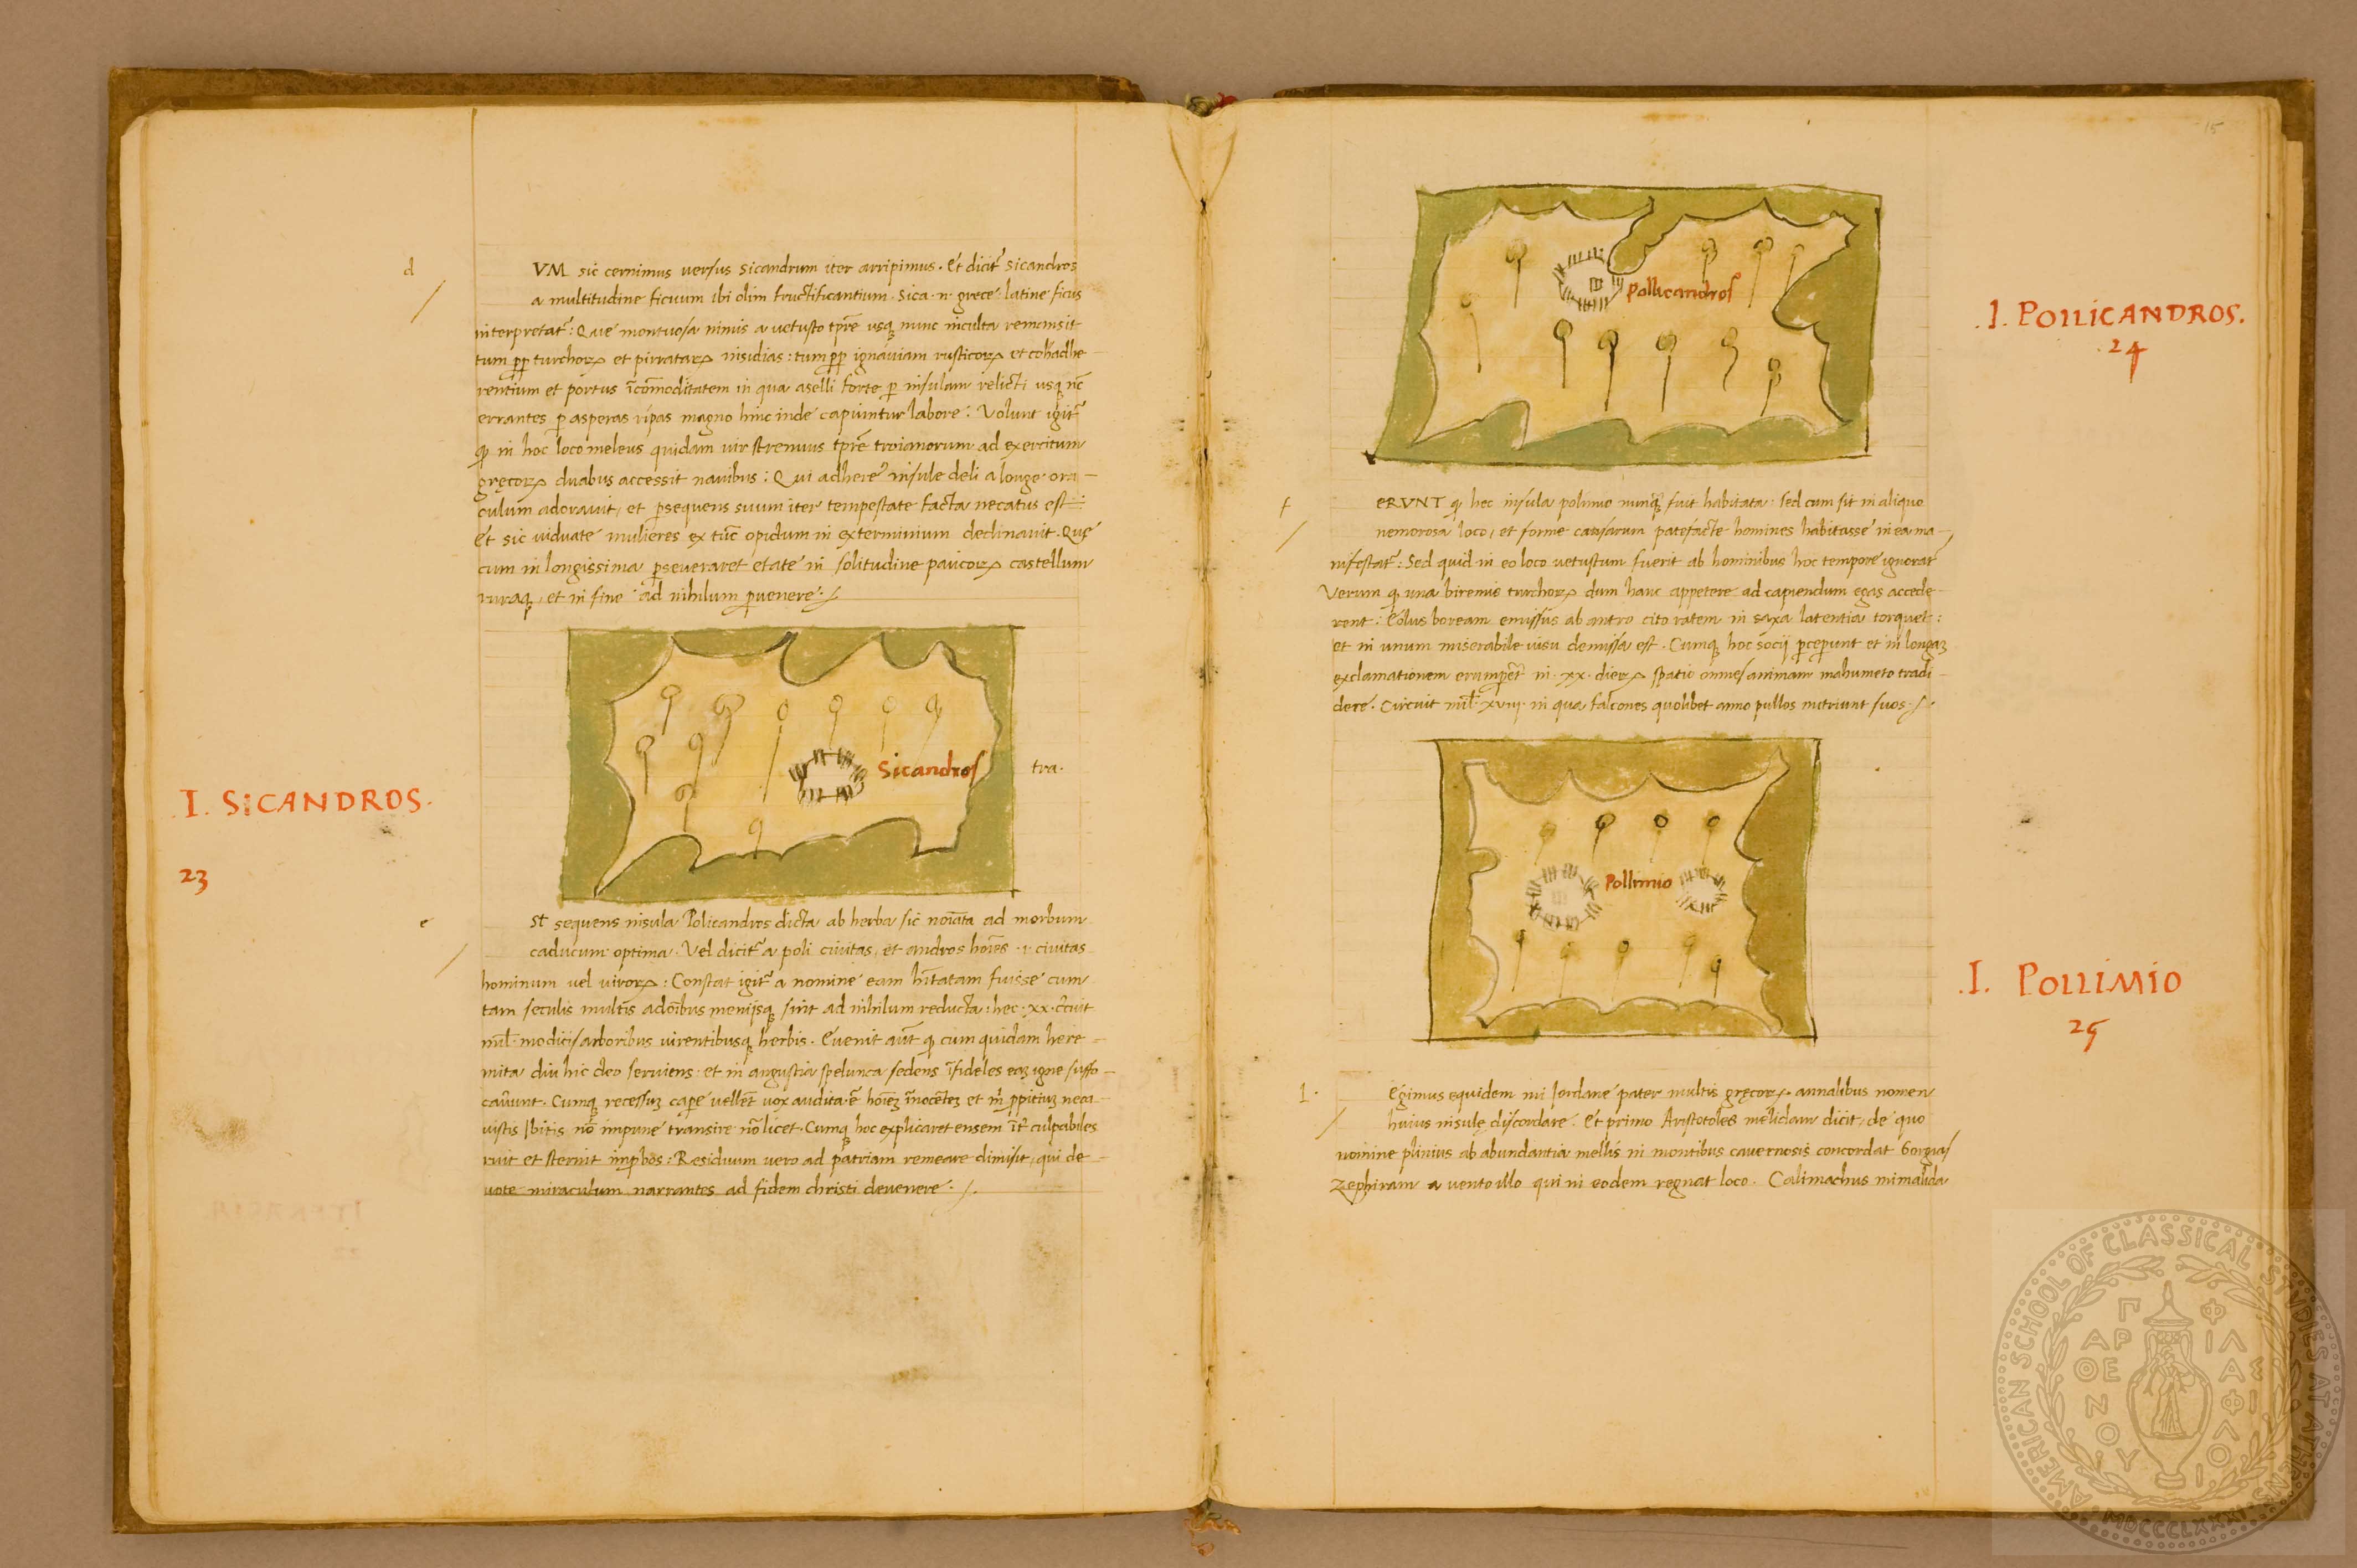 d
VM sic cernimus versus Sicandrum iter arripimus. Et dicit᷑ Sicandros
a multitudine ficuum ibi olim fructificantium. Sica. n. grece. latine ficus
interpretat᷑: Que montuosa nimis a vetusto tp̄re usq nunc inculta remansit
tum pp turchoꝝ et pirrataꝝ insidias: tum pp ignauiam rusticoꝝ et cohadhe
rentium et portus īcom̄oditatem in qua aselli forte ꝑ insulam relicti usq nc̄
errantes ꝑ asperas ripas magno hinc inde capiuntur labore: Volunt igit᷑
ꝙ in hoc loco meleus quidam uir strenuus tp̄re troianorum ad exercitum
gręcoꝝ duabus accessit nauibus: Qui adhere insule deli a longe ora
culum adorauit, et ꝑsequens suum iter tempestate facta necatus est:
Et sic uiduate mulieres ex tūc opidum in exterminium declinauit. Quę
cum in longissima ꝑseueraret etate in solitudine paucoꝝ castellum
ruraq, et in fine ad nihilum ꝑuenere:
Sicandros
tra.
I. SICANDROS.
23
e
St sequens insula Policandros dicta ab herba sic noīata ad morbum
caducum optima. Vel dicit᷑ a poli ciuitas, et andros hoīes .i. ciuitas
hominum uel uiroꝝ: Constat igit᷑ a nomine eam hītatam fuisse cum
tam seculis multis ad oībus menijsq sint ad nihilum reducta: hec. xx. c̄cuit
mil. modicis arboribus uirentibusq herbis. Euenit aūt ꝙ cum quidam here
mita diu hic deo seruiens: et in angustia spelunca sedens īfideles eaꝫ igne suffo
cauunt. Cumq recessuꝫ caꝑe uellēt uox audita ē hoīeꝫ īnocēteꝫ et m̄ ppitiuꝫ neca
uistis Ibitis nō impune transire nō licet. Cumq hoc explicaret ensem īt᷑ culpabiles
ruit et sternit imꝓbos: Residuum vero ad patriam remeare dimisit, qui de
uote miraculum narrantes ad fidem christi deuenere.
15
Pollicandros
I. POLLICANDROS.
24
f
ERVNT ꝙ hec insula polimio nunq̄ fuit habitata: sed cum sit in aliquo
nemorosa loco, et forme casarum patefacte homines habitasse in ea ma
nifestat᷑: Sed quid in eo loco uetustum fuerit ab hominibus hoc tempore ignorat᷑
Verum ꝙ una biremis turchoꝝ dum hanc appetere ad capiendum egas accede
rent: Eolus boream emissus ab antro cito ratem in saxa latentia torquet:
et in unum miserabile uisu demissa est. Cumq hoc socij ꝑcepunt et in longaꝫ
exclamationem erumpēt in. xx. dieꝝ spatio omnes animam mahumeto tradi
dere. Circuit mil. xviij. in qua falcones quolibet anno pullos nutriunt suos.
Pollimio
I. POLLIMIO
25
l.
Egimus equidem mi Iordane pater multis gręcoꝝ annalibus nomen
huius insulę discordare. Et primo Aristotoles melidam dicit, de quo
nomine plinius ab abundantia mellis in montibus cauernosis concordat Gorgias
Zephiram a uento illo qui in eodem regnat loco. Calimachus mimalida
AMERICAN SCHOOL OF CLASSICAL STUDIES AT ATHENS
MDCCCLXXXI
ΠΑΡΘΕΝΟΥ ΦΙΛΑΣ ΦΙΛΟΙ